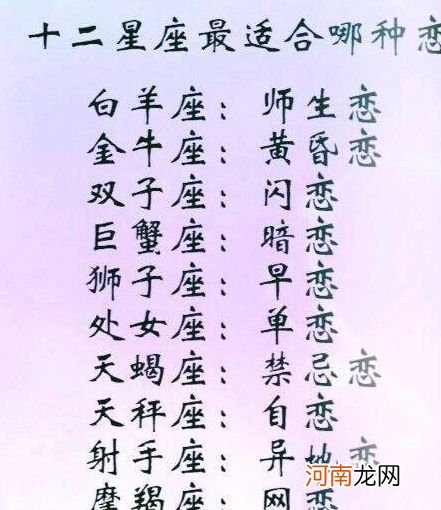 十二星座最适合哪种恋
白羊座：师生恋
金牛座：黄昏恋
双子座：闪恋
巨蟹座：暗恋
狮子座：早恋
处女座：单恋
天蝎座：禁忌恋
天秤座：自恋
射手座：异地恋
摩羯座：网恋
河南龙网